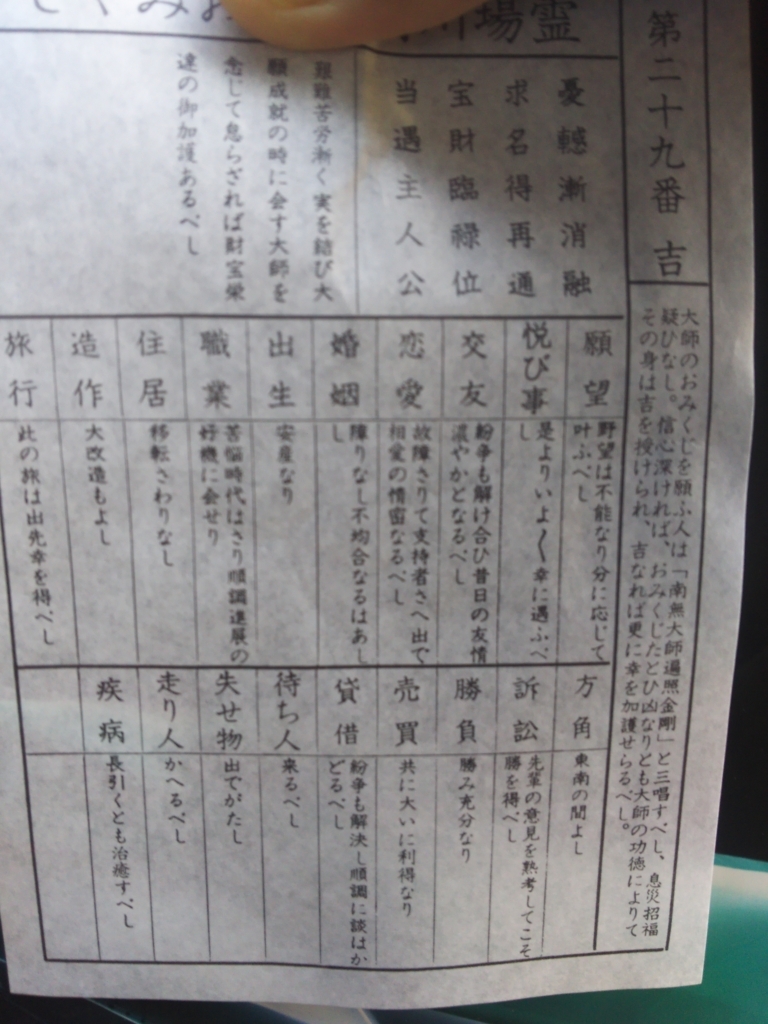 第二十九番 吉
大師のおみくじを願ふ人は「南無大師遍照金剛」と三唱すべし、息災招福
疑ひなし。信心深ければ、おみくじたとひ凶なりとも大師の功徳によりて
その身は吉を授けられ、吉なれば更に幸を加護せらるべし。
霊場
おみくじ
憂轗漸消融
求名得再通
宝財臨禄位
当遇主人公
艱難苦労漸く実を結び大
願成就の時に会す大師を
念じて怠らざれば財宝栄
達の御加護あるべし
願望
野望は不能なり分に応じて
叶ふべし
悦び事
是よりいよ〱幸に遇ふべ
し
交友
紛争も解け合ひ昔日の友情
濃やかとなるべし
恋愛
故障さりて支持者さへ出で
相愛の情密なるべし
婚姻
障りなし不均合なるはあし
し
出生
安産なり
職業
苦悩時代はさり順調進展の
好機に会せり
住居
移転さわりなし
造作
大改造もよし
旅行
此の旅は出先幸を得べし
方角
東南の間よし
訴訟
先輩の意見を熟考してこそ
勝を得べし
勝負
勝み充分なり
売買
共に大いに利得なり
貸借
紛争も解決し順調に談はか
どるべし
待ち人
来るべし
失せ物
出でがたし
走り人
かへるべし
疾病
長引くとも治癒すべし